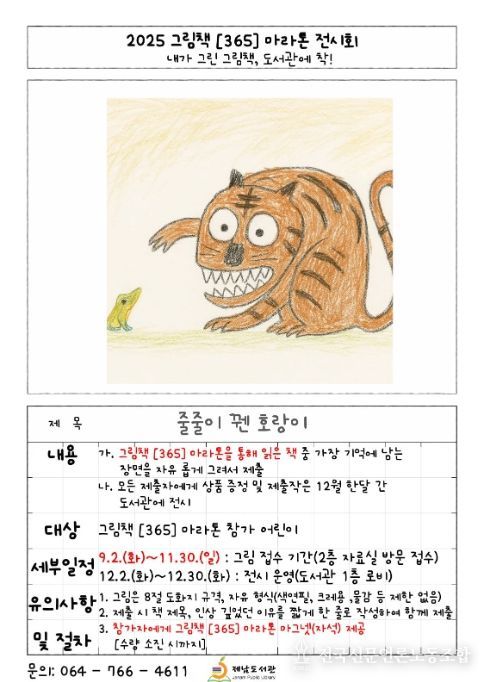 2025 그림책 [365] 마라톤 전시회
내가 그린 그림책, 도서관에 착!
제 목 줄줄이 꿴 호랑이
내용 가. 그림책 [365] 마라톤을 통해 읽은 책 중 가장 기억에 남는
장면을 자유 롭게 그려서 제출
나. 모든 제출자에게 상품 증정 및 제출작은 12월 한달 간
도서관에 전시
대상 그림책 [365] 마라톤 참가 어린이
세부일정 9.2.(화)~11.30.(일) : 그림 접수 기간(2층 자료실 방문 접수)
12.2.(화)~12.30.(화) : 전시 운영(도서관 1층 로비)
유의사항 1. 그림은 8절 도화지 규격, 자유 형식(색연필, 크레용 ,물감 등 제한 없음)
2. 제출 시 책 제목, 인상 깊었던 이유를 짧게 한 줄로 작성하여 함께 제출
및 절차 3. 참가자에게 그림책 [365] 마라톤 마그넷(자석) 제공
[수량 소진 시까지]
문의: 064 - 766 - 4611 제남도서관
Jenam Public Library
전국신문언론노동조합